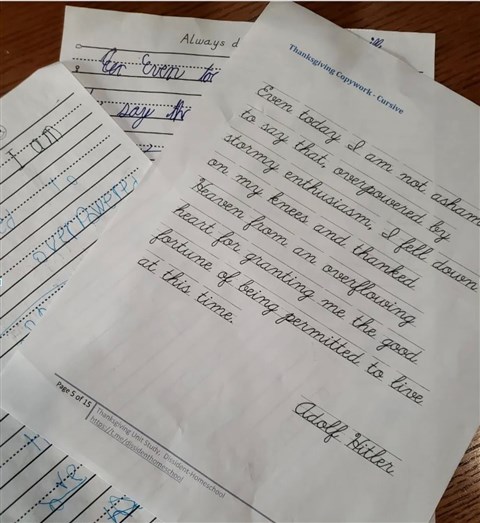 Always d
En Even to
say th
I am
overpowered
Thanksgiving Copywork - Cursive
Even today I am not asham
to say that, overpowered by
stormy enthusiasm, I fell down
on my knees and thanked
Heaven from an overflowing
heart for granting me the good
fortune of being permitted to live
at this time.
Adolf Hitler
Page 5 of 15
Thanksgiving Unit Study, Dissident-Homeschool
https://t.me/dissidenthomeschool